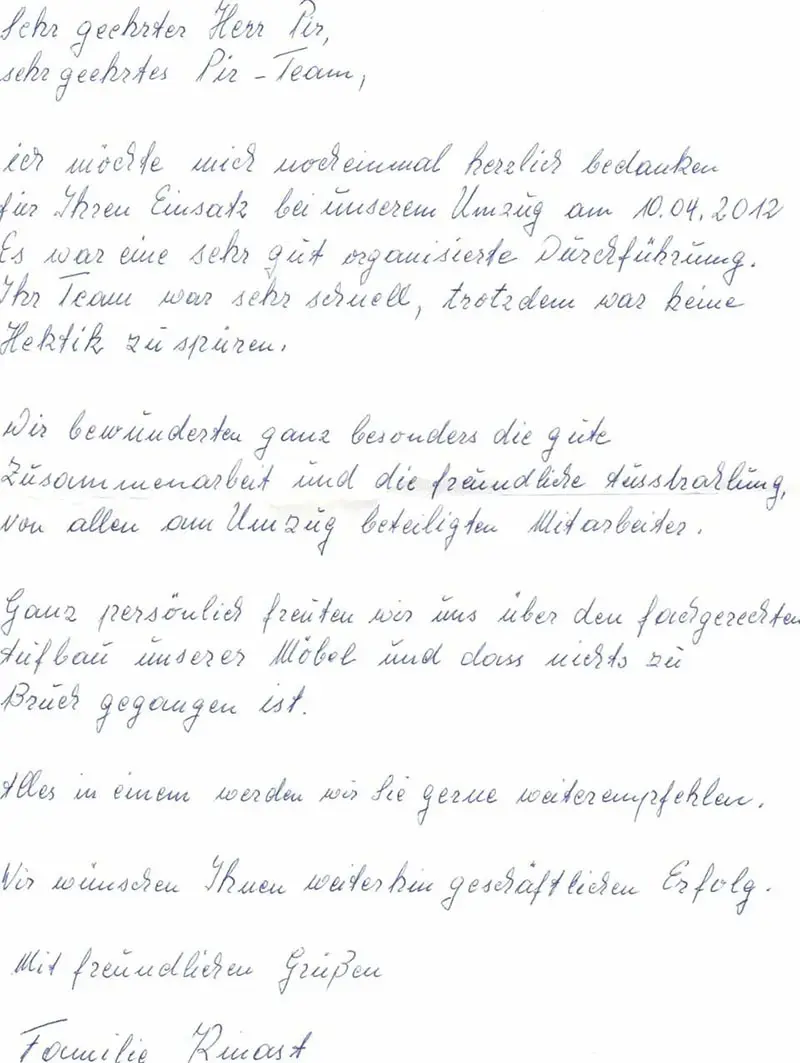 Sehr geehrter Herr Pir,
sehr geehrtes Pir-Team,
ich möchte mich nocheinmal herzlich bedanken
für Ihren Einsatz bei unserem Umzug am 10.04.2012
Es war eine sehr gut organisierte Durchführung.
Ihr Team war sehr schnell, trotzdem war keine
Hektik zu spüren.
Wir bewunderten ganz besonders die gute
Zusammenarbeit und die freundliche Ausstrahlung,
von allen am Umzug beteiligten Mitarbeiter.
Ganz persönlich freuten wir uns über den fachgerechten
Aufbau unserer Möbel und dass nichts zu
Bruch gegangen ist.
Alles in einem werden wir Sie gerne weiterempfehlen.
Wir wünschen Ihnen weiterhin geschäftlichen Erfolg.
Mit freundlichen Grüßen
Familie Kinast